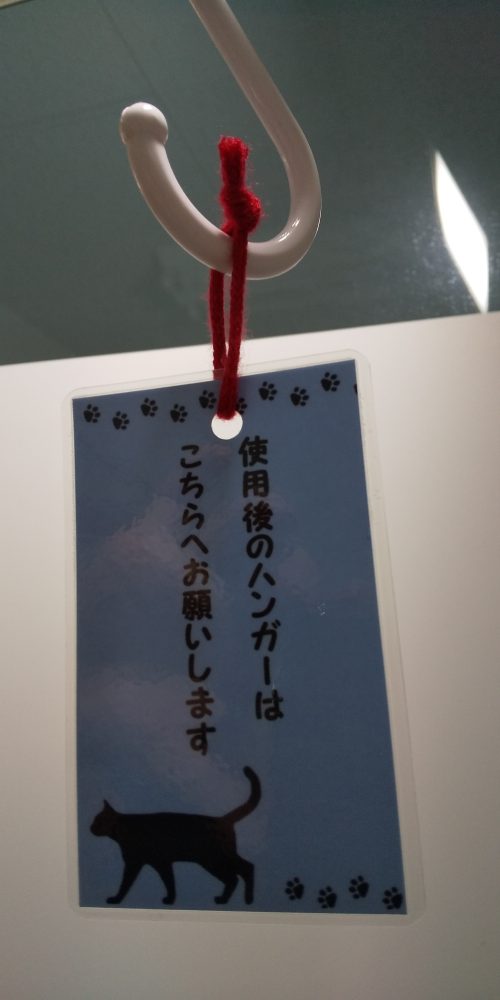 使用後のハンガーは
こちらへお願いします